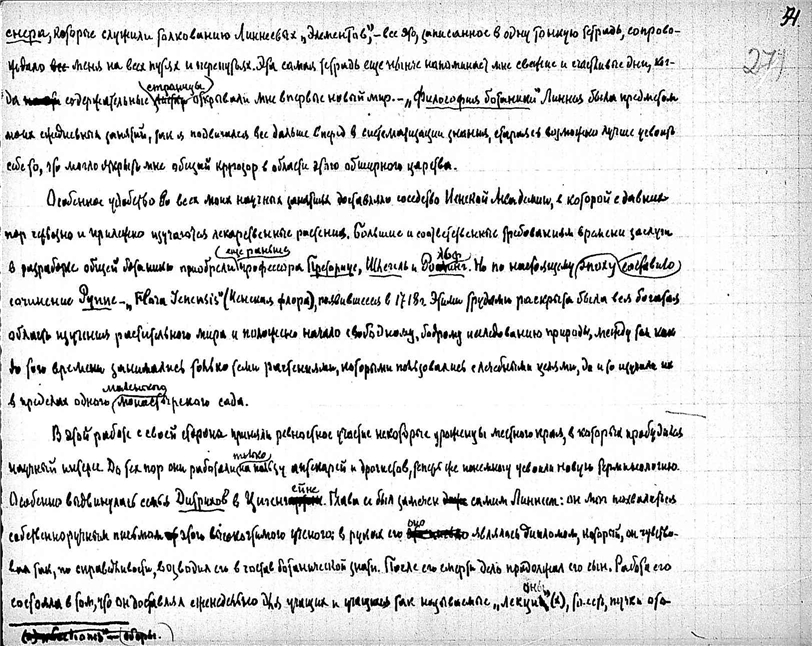 34
27
снера, которые служили толкованию Линнеевых "Элементов", – все это, записанное в одну тонкую тетрадь, сопрово-
ждало меня на всех путях и перепутьях. Эта самая тетрадь еще ныне напоминает мне свежие и счастливые дни, ког-
да содержательные страницы открывали мне впервые новый мир. – "Философия ботаники" Линнея была предметом
моих ежедневных занятий, так я подвигался все дальше вперед в систематизации знания, стараясь возможно лучше усвоить
себе то, что могло открыть мне общий кругозор в области этого обширного царства.
Особенное удобство во всех моих научных занятиях доставляло соседство Иенской Академии, в которой с давних
пор серьезно и прилежно изучаются лекарственные растения. Большие и соответственные требованиям времени заслуги
в разработке общей ботаники приобрели еще раньше профессора Преториус, Шлегель и Рольфинк. Но по настоящему эпоху составило
сочинение Руппе – "Flora Jenensis" (Иенская флора), появившееся в 1718 г. Этими трудами раскрыта была вся богатая
область изучения растительного мира и положено начало свободному, бодрому исследованию природы, между тем как
до того времени занимались только теми растениями, которыми пользовались с лечебными целями, да и то изучали их
в пределах одного маленького монастырского сада.
В этой работе с своей стороны приняли ревностное участие некоторые уроженцы местного края, в которых пробудился
научный интерес. До сех пор они работали только на пользу аптекарей и дрогистов, теперь же понемногу усвоили новую терминологию.
Особенно выдвинулась семья Дитрихов в Цигенгейне. Глава ее был замечен самим Линнеем: он мог похвалиться
собственноручным письмом этого высокочтимого ученого; в руках его оно являлось дипломом, который, он чувство-
вал так, по справедливости, возводил его в состав ботанической знати. После его смерти дело продолжал его сын. Работа его
состояла в том, что он доставлял еженедельно для учащих и учащихся так называемые "лекционы" (*), то-есть, пучки ота-
(*) "lectionis" – сборы.